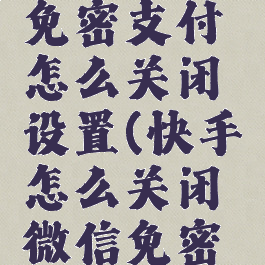 免密支付
怎么关闭
设置(快手
怎么关闭
微信免密